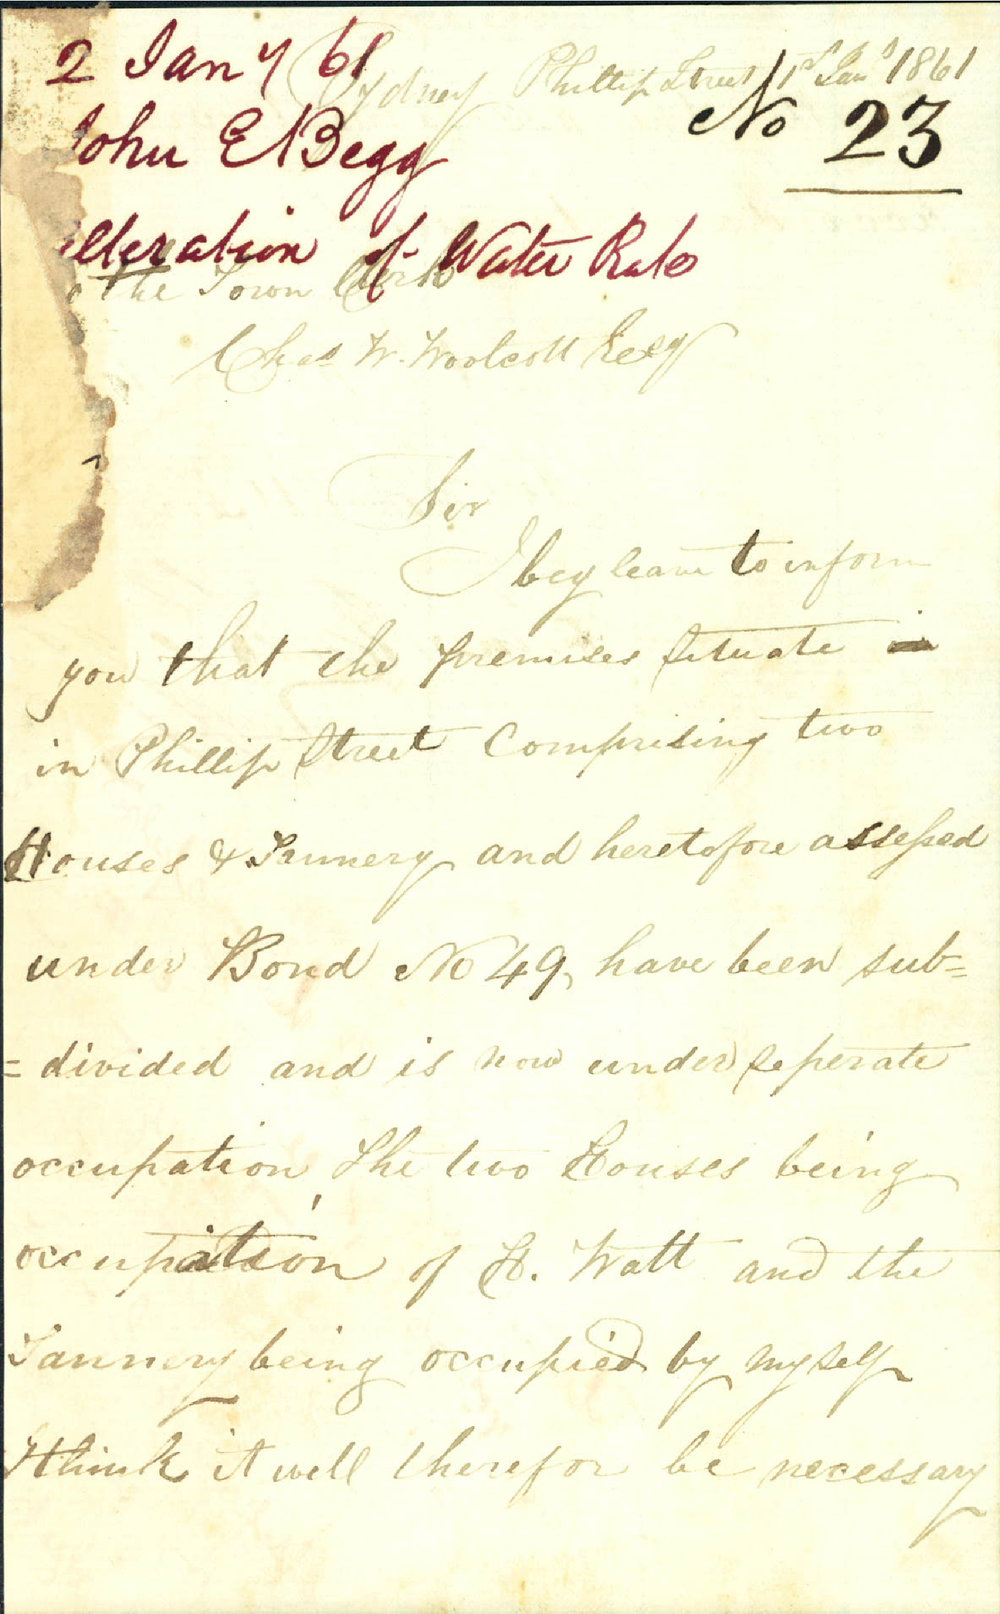 2 Jany 61
Sydney Phillip Street 1st Jany 1861
John E Begg
No 23
alteration of Water Rate
To the Town Clerk
Chas W. Woolcott Esqr
Sir
I beg leave to inform
you that the premises situate in
in Phillip Street Comprising two
Houses & Tannery and heretofore assessed
under Bond No 49, have been sub=
=divided and is now under seperate
occupation The two Houses being
occupation of H. Watt and the
Tannery being occupied by myself
I think it will therefor be necessary